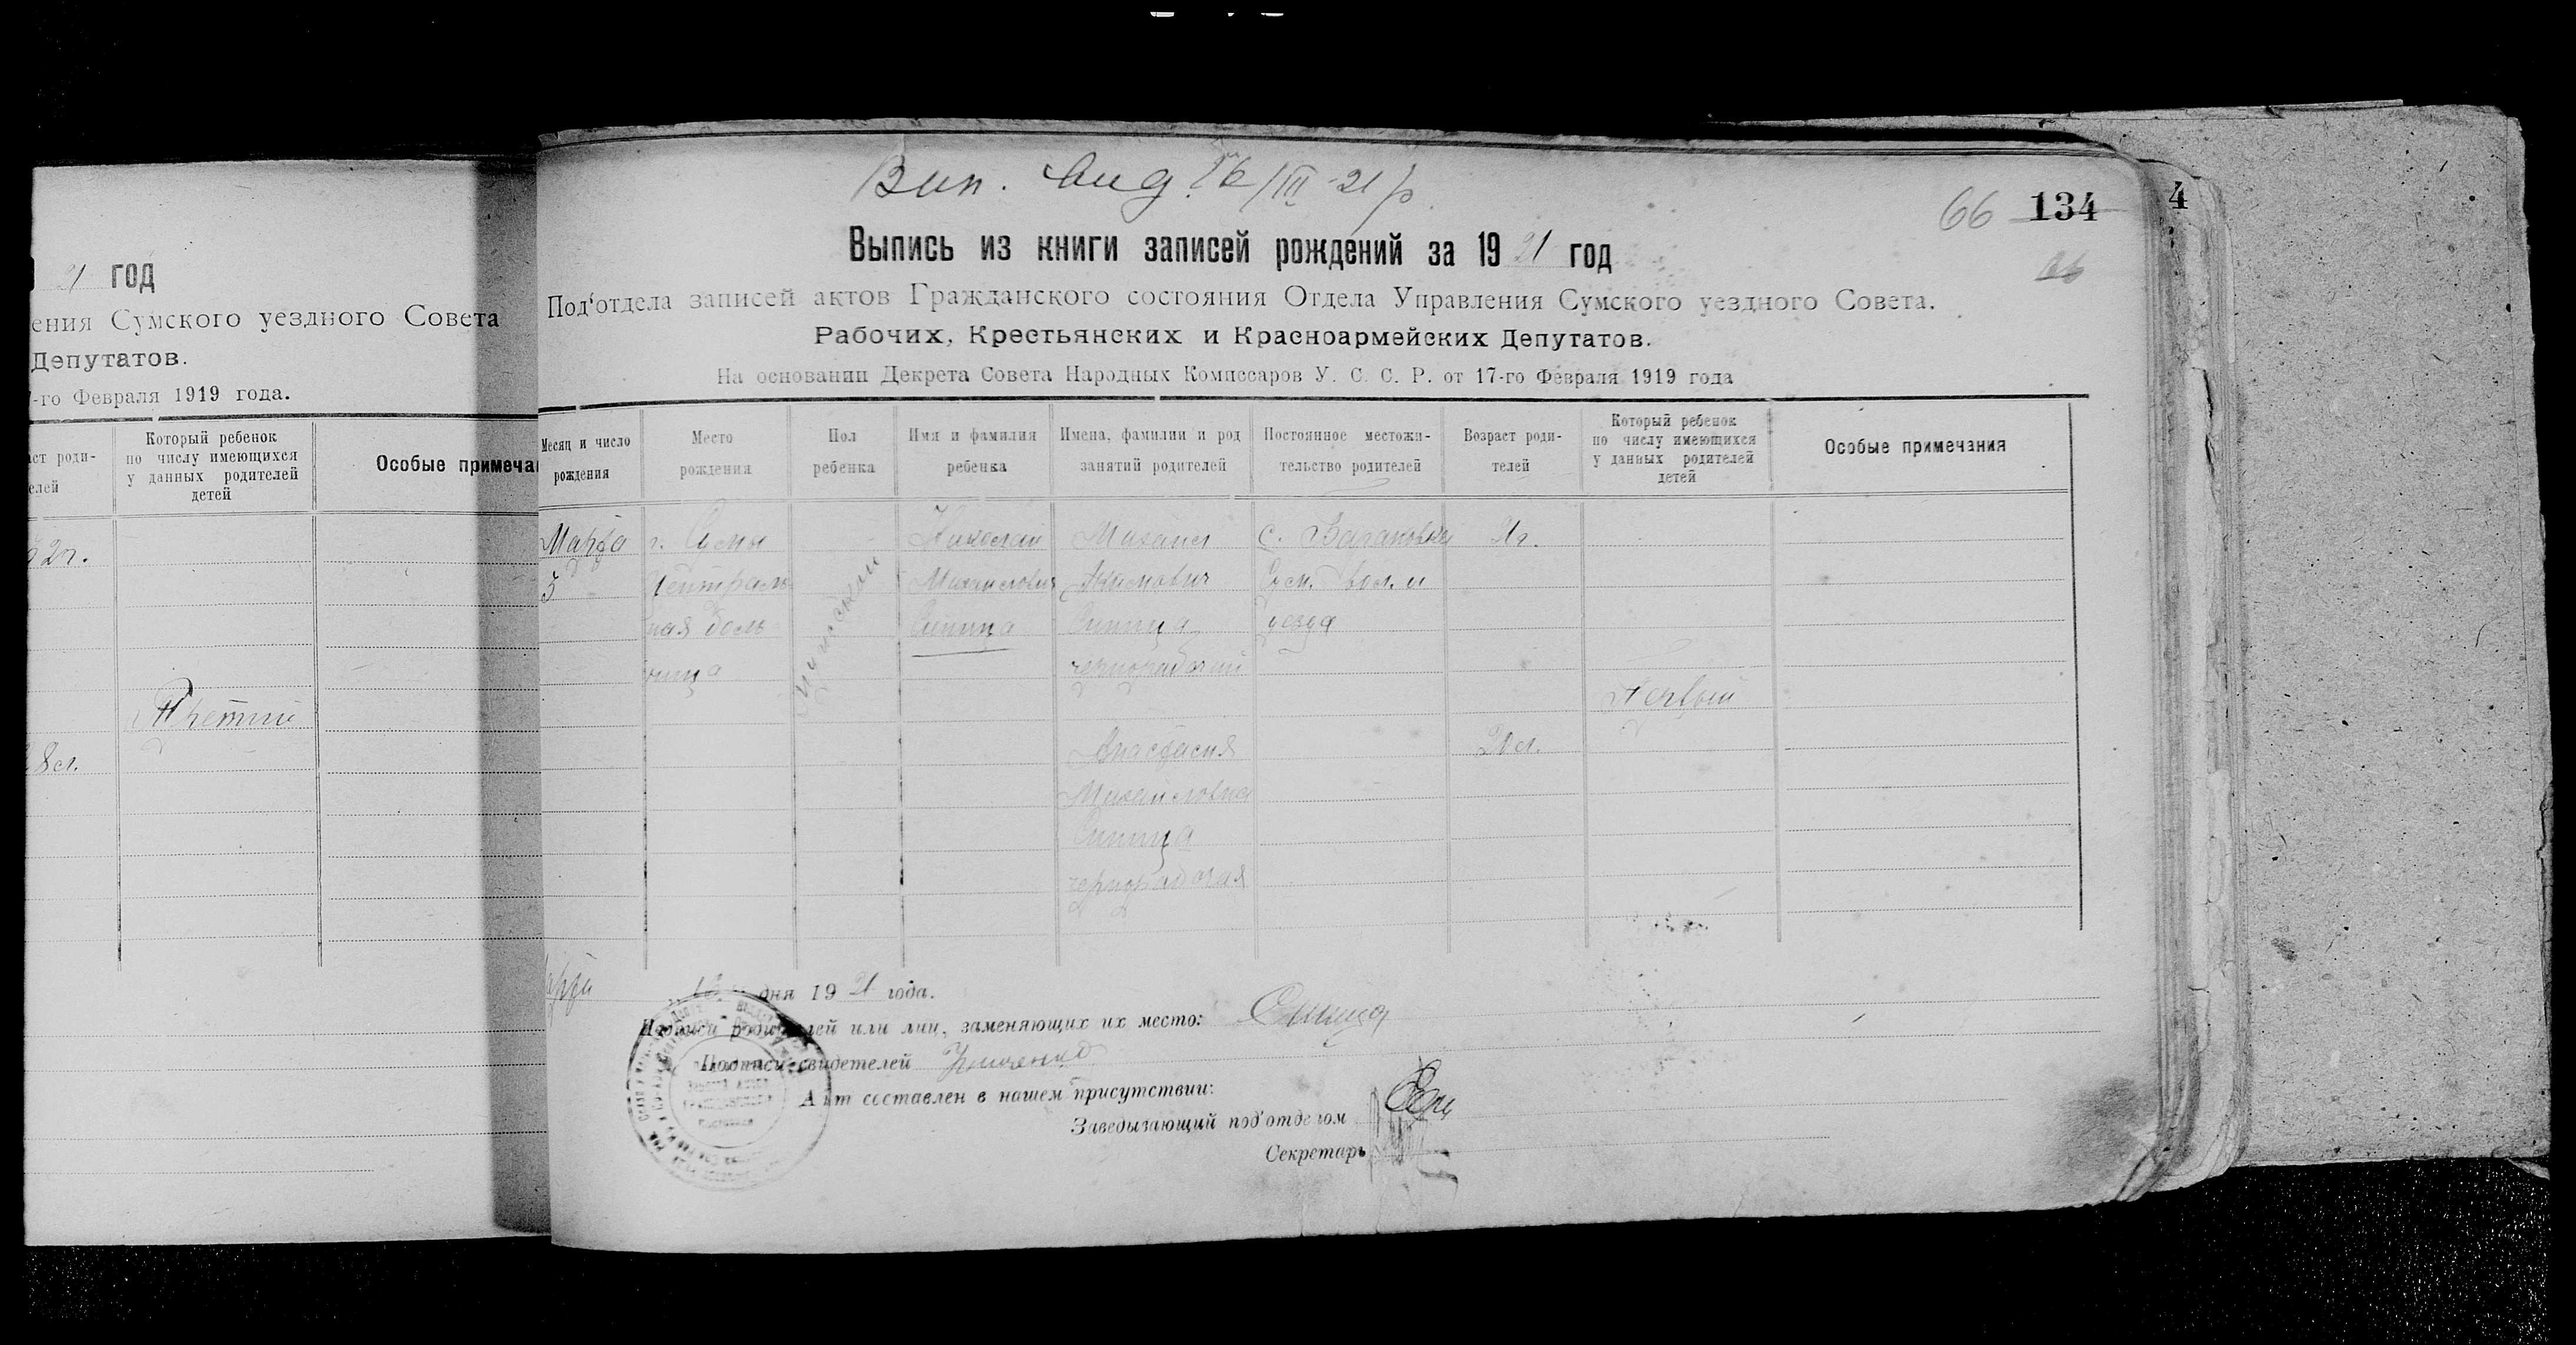 21 год
ения Сумского уездного Совета
Депутатов.
-го Февраля 1919 года.
аст роди-
елей
Который ребенок
по числу имеющихся
у данных родителей
детей
Особые примеча
2г.
Третий
8л.
Вип. вид. 16/III-21 р.
66 134
4
Выпись из книги записей рождений за 1921 год
Под‘отдела записей актов Гражданского состояния Отдела Управления Сумского уездного Совета.
Рабочих, Крестьянских и Красноармейских Депутатов.
На основании Декрета Совета Народных Комиссаров У. С. С. Р. от 17-го Февраля 1919 года
Месяц и число
рождения
Место
рождения
Пол
ребенка
Имя и фамилия
ребенка
Имена, фамилии и род
занятий родителей
Постоянное местожи-
тельство родителей
Возраст роди-
телей
Который ребенок
по числу имеющихся
у данных родителей
детей
Особые примечания
Марта
5
г. Сумы
Централь
ная боль
ница
мужской
Николай
Михайлович
Синица
Михаил
Акимович
Синица
чернорабочий
Анастасия
Михайловна
Синица
чернорабочая
с.
Сум. вол. и
уезда
21г.
20л.
Первый
дня 1921 года.
Подписи родителей или лиц, заменяющих их место: Синица
Подписи свидетелей
Акт составлен в нашем присутствии:
Заведывающий под‘отделом
Секретарь